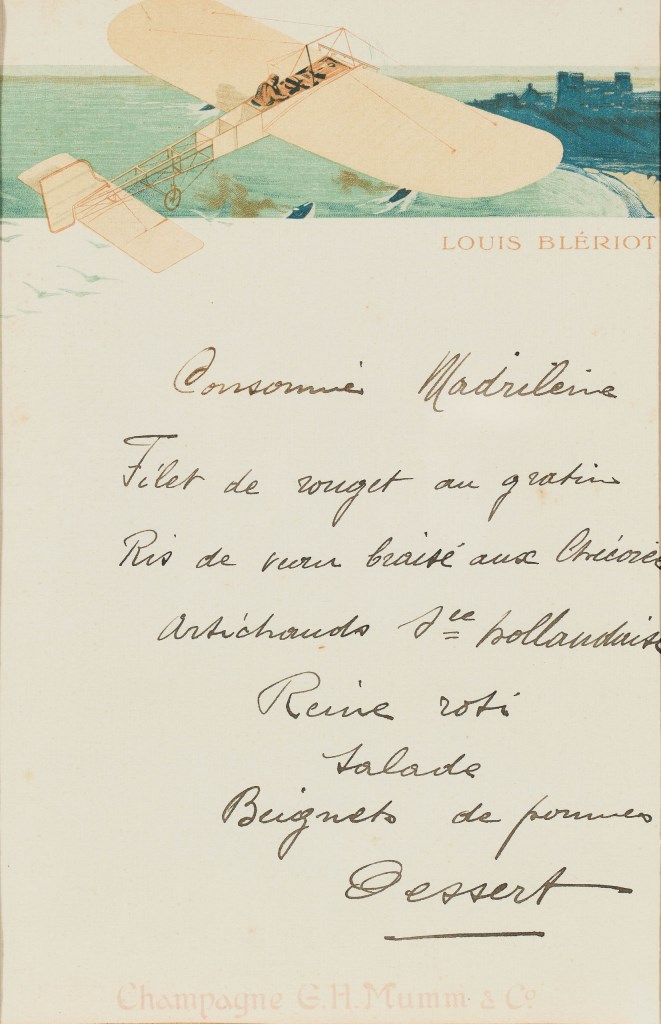 LOUIS BLÉRIOT
Consommé Madrilène
Filet de rouget au gratin
Ris de veau braisé aux Chicorée
Artichauds Sce hollandaise
Reine roti
Salade
Beignets de pommes
Dessert
Champagne G.H. Mumm & Co